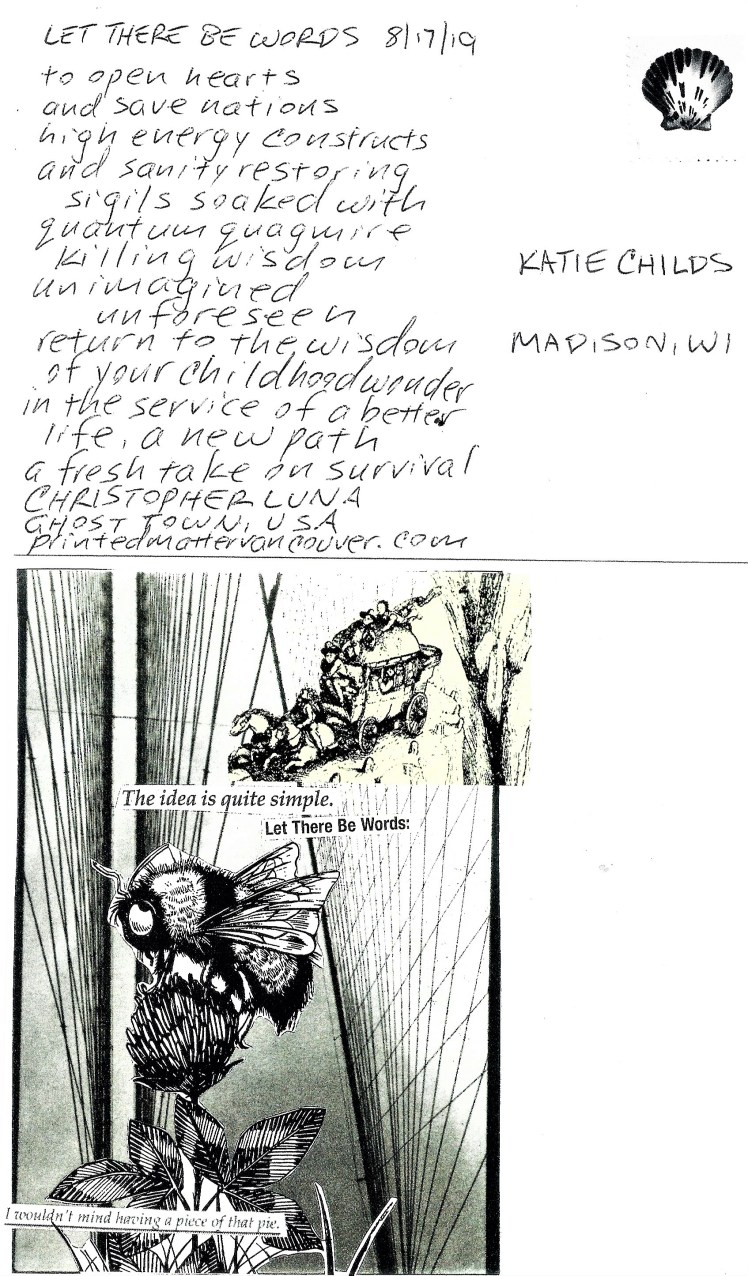 LET THERE BE WORDS 8/17/19
to open hearts
and save nations
high energy constructs
and sanity restoring
sigils soaked with
quantum quagmire
killing wisdom
unimagined
unforeseen
return to the wisdom
of your childhood wonder
in the service of a better
life, a new path
a fresh take on survival
CHRISTOPHER LUNA
GHOST TOWN, USA
printedmattervancouver.com
KATIE CHILDS
MADISON, WI
The idea is quite simple.
Let There Be Words:
I wouldn't mind having a piece of that pie.